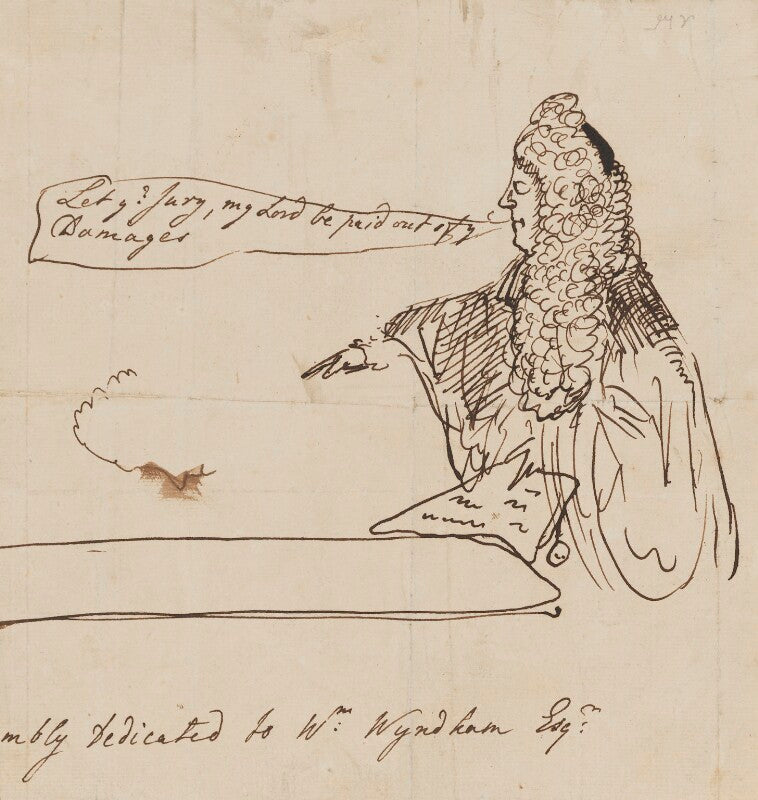 Let y.e Jury, my Lord be paid out of y.e
Damages
mbly Dedicated to W.m Wyndham Esq.r